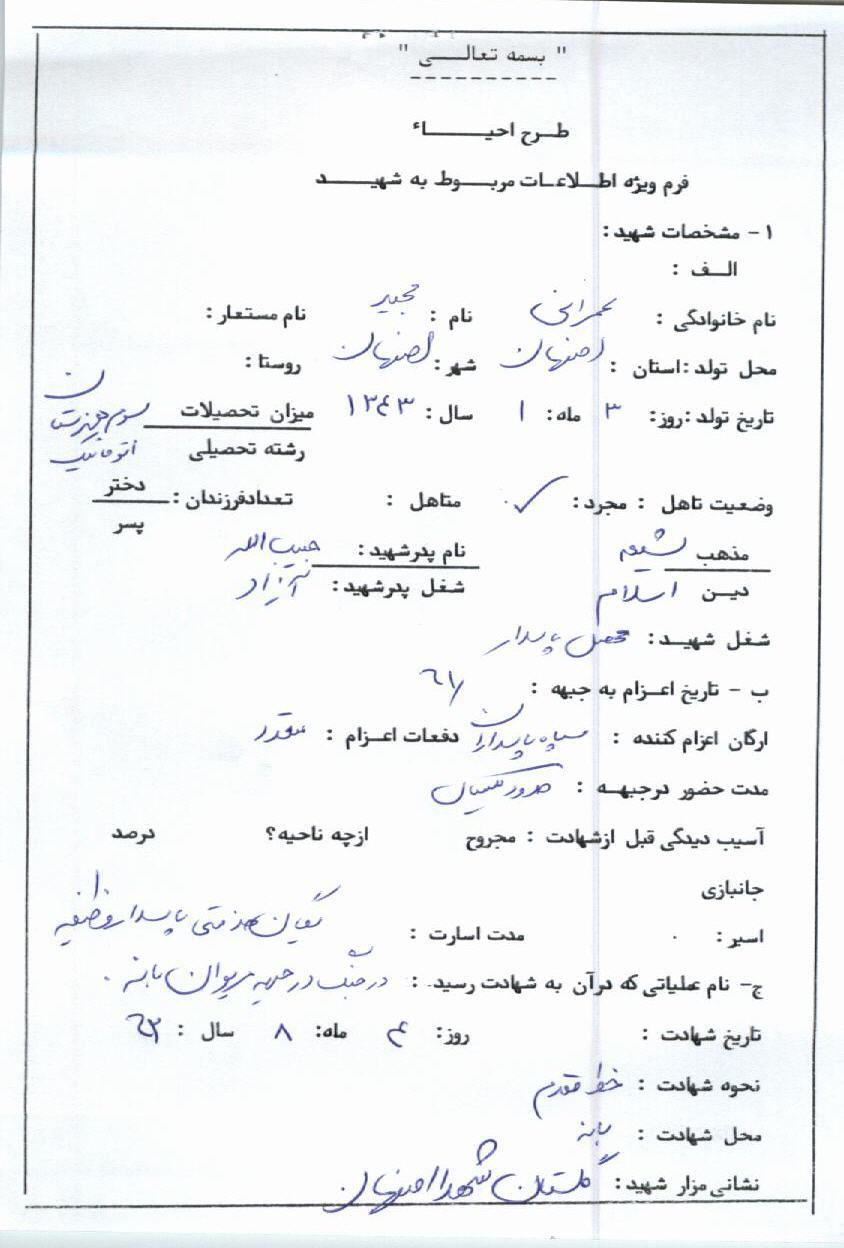 " بسمه تعالــی "
طــرح احیــــاء
فرم ویژه اطــلاعــات مربــوط به شهیــــد
۱- مشخصات شهید :
الــف :
نام خانوادگی : عمرانی نام : مجید نام مستعار :
محل تولد : استان : اصفهان شهر : اصفهان روستا :
تاریخ تولد : روز : ۳ ماه : ۱ سال : ۱۳۴۳ میزان تحصیلات سوم
رشته تحصیلی اتومکانیک
وضعیت تاهل : مجرد : ✓ متاهل : تعدادفرزندان : دختر
پسر
مذهب شیعه نام پدرشهید : حبیب الله
دیــن اسلام شغل پدرشهید : آزاد
شغل شهیــد : محصل پاسدار
ب - تاریخ اعــزام به جبهه : ۶۱/
ارگان اعزام کننده : سپاه پاسداران دفعات اعــزام :
مدت حضور درجبهــه : حدود یکسال
آسیب دیدگی قبل ازشهادت : مجروح ازچه ناحیه؟ درصد
جانبازی
اسیر : مدت اسارت : پاسدار وظیفه
ج- نام عملیاتی که درآن به شهادت رسید : در جنگ در جبهه مریوان بانه .
تاریخ شهادت : روز : ۴ ماه : ۸ سال : ۶۲
نحوه شهادت : خط مقدم
محل شهادت : بانه
نشانی مزار شهید : گلستان شهدا اصفهان